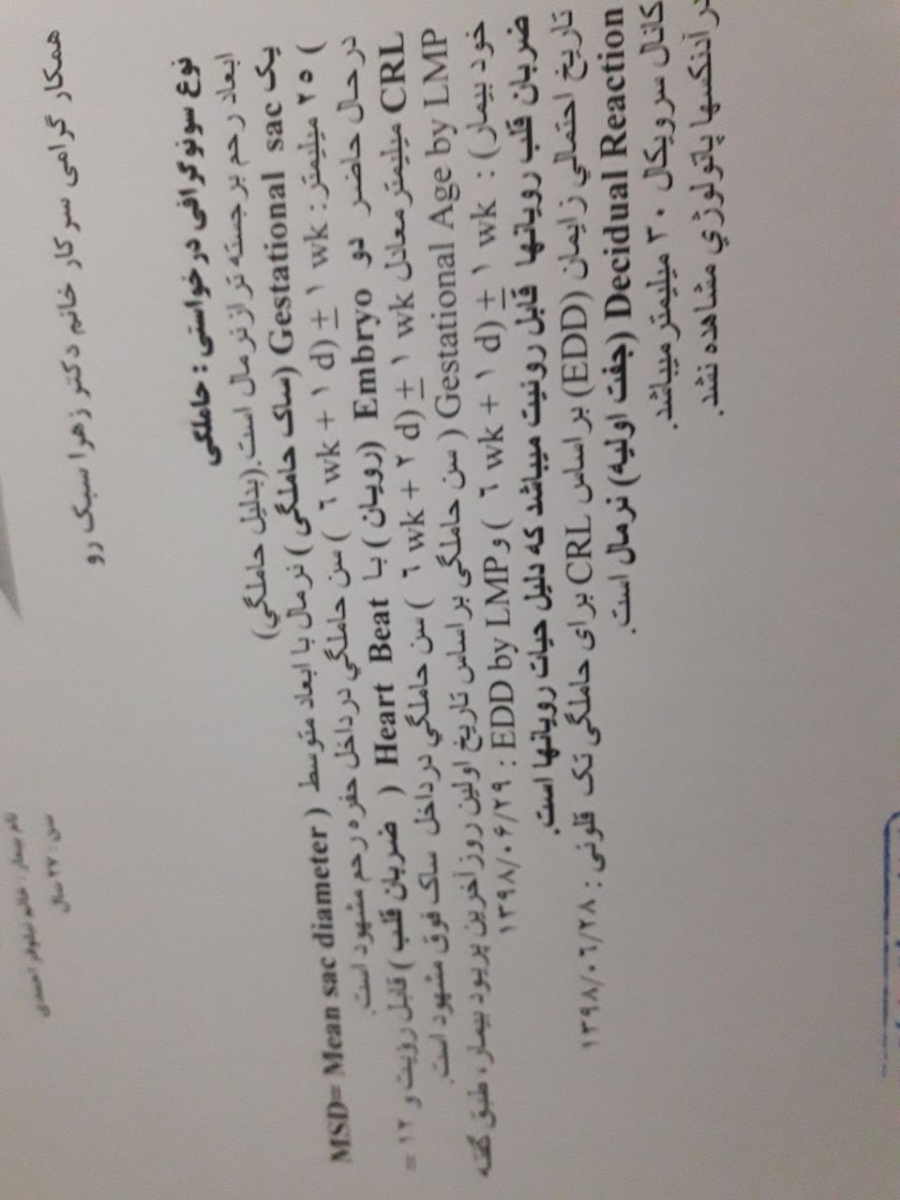 نام بیمار : خانم نیلوفر احمدی
سن : ۲۷ سال
همکار گرامی سرکار خانم دکتر زهرا سبک رو
نوع سونوگرافی درخواستی : حاملگی
ابعاد رحم برجسته تر از نرمال است.(بدلیل حاملگي)
یک Gestational sac (ساک حاملگی ) نرمال با ابعاد متوسط ( MSD= Mean sac diameter
) ۲۵ میلیمتر: ۶ wk + ۱ d) ± ۱ wk ) سن حاملگي در داخل حفره رحم مشهود است.
در حال حاضر دو Embryo (رویان ) با Heart Beat ( ضربان قلب ) قابل رؤیت و ۱۲ =
CRL میلیمتر معادل ۶ wk + ۲ d) ± ۱ wk ) سن حاملگي در داخل ساک فوق مشهود است.
Gestational Age by LMP ( سن حاملگی بر اساس تاریخ اولین روز آخرین پریود بیمار، طبق گفته
خود بیمار) : ۶ wk + ۱ d) ± ۱ wk ) و EDD by LMP : ۱۳۹۸/۰۶/۲۹
ضربان قلب رویانها قابل رونیت میباشد که دلیل حیات رویانها است.
تاریخ احتمالي زایمان (EDD) بر اساس CRL برای حاملگی تک قلونی : ۱۳۹۸/۰۶/۲۸
Decidual Reaction (جفت اولیه) نرمال است.
کانال سرویکال ۳۰ میلیمتر میباشد.
در آدنکسها پاتولوژي مشاهده نشد.